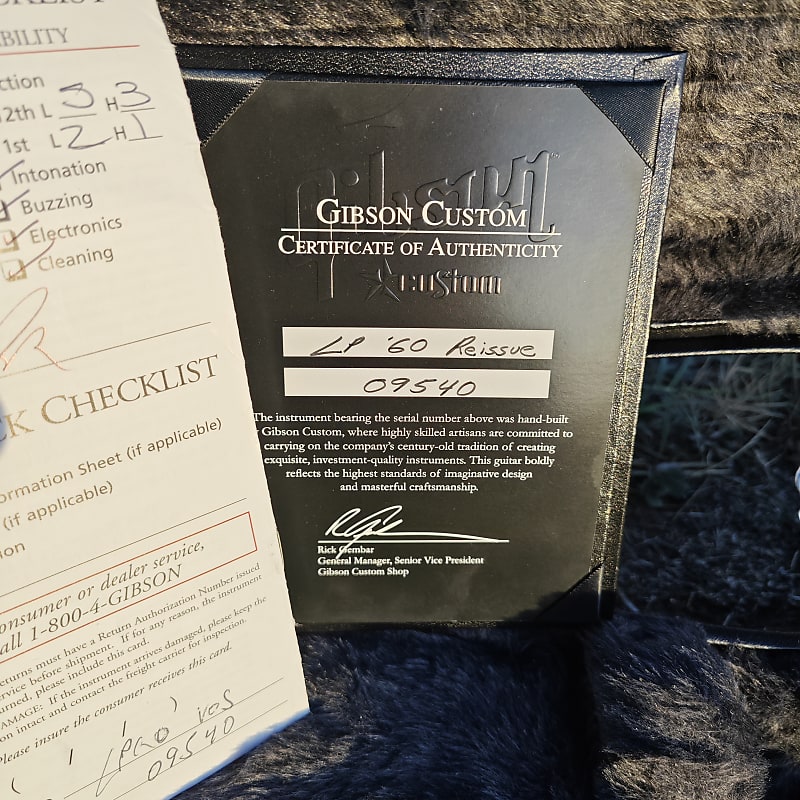 CHECKLIST
BILITY
ction
12th L 3 H 3
1st L 2 H 1
Intonation
Buzzing
Electronics
Cleaning
CK CHECKLIST
ormation Sheet (if applicable)
(if applicable)
ion
onsumer or dealer service,
all 1-800-4-GIBSON
returns must have a Return Authorization Number issued
ervice before shipment. If for any reason, the instrument
urned, please include this card.
AMAGE: If the instrument arrives damaged, please keep the
on intact and contact the freight carrier for inspection.
Please insure the consumer receives this card.
LPR0 VOS
09540
Gibson
Custom
GIBSON CUSTOM
CERTIFICATE OF AUTHENTICITY
LP '60 Reissue
09540
The instrument bearing the serial number above was hand-built
Gibson Custom, where highly skilled artisans are committed to
carrying on the company's century-old tradition of creating
exquisite, investment-quality instruments. This guitar boldly
reflects the highest standards of imaginative design
and masterful craftsmanship.
Rick Gembar
General Manager, Senior Vice President
Gibson Custom Shop